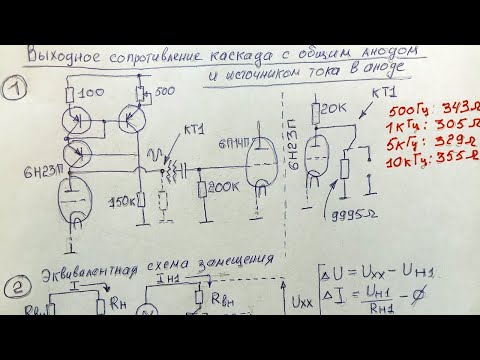 Выходное сопротивление каскада с общим анодом
и источником тока в аноде
1
100
500
КТ1
6Н23П
6П14П
150к
200к
20К
КТ1
6Н23П
9995Ω
500Гц: 343Ω
1кГц: 305Ω
5кГц: 329Ω
10кГц: 355Ω
2
Эквивалентная схема замещения
I
Rвн
Rн
Iн1
Rвн
Uхх
ΔU = Uхх - Uн1
ΔI = Uн1/Rн1 - ∅